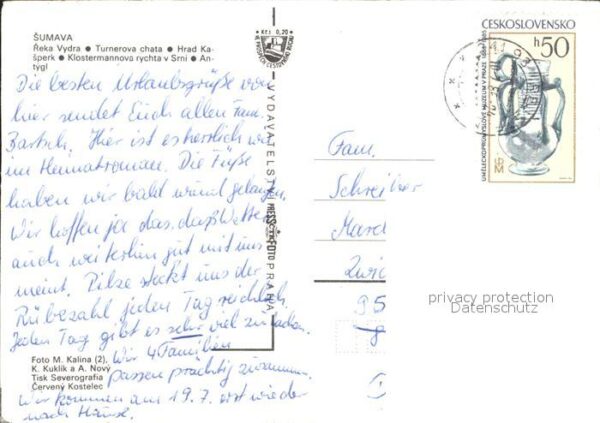 ŠUMAVA
Řeka Vydra ● Turnerova chata ● Hrad Ka-
šperk ● Klostermannova rychta v Srní ● An-
týgl
Die besten Urlaubsgrüße von
hier sendet Euch allen Fam.
Bartsch. Hier ist es herrlich wie
im Heimatroman. Die Füße
haben wir bald wund gelaufen.
Wir hoffen ja das, daß Wetter
auch weiterhin gut mit uns
meint. Pilze steckt uns der
Rübezahl jeden Tag reichlich.
Jeden Tag gibt es sehr viel zu lachen.
Wir 4 Familien
passen prächtig zusammen.
Wir kommen am 19.7. erst wieder
nach Hause.
Foto M. Kalina (2),
K. Kuklík a A. Nový
Tisk Severografia
Červený Kostelec
Kčs 0,20
VYDAVATELSTVÍ PRESSFOTO PRAHA
ČESKOSLOVENSKO
h50
UMĚLECKOPRŮMYSLOVÉ MUZEUM V PRAZE 1885-1985
UPM
Fam.
Schreiber
Mard
Zwic
95
8
privacy protection
Datenschutz